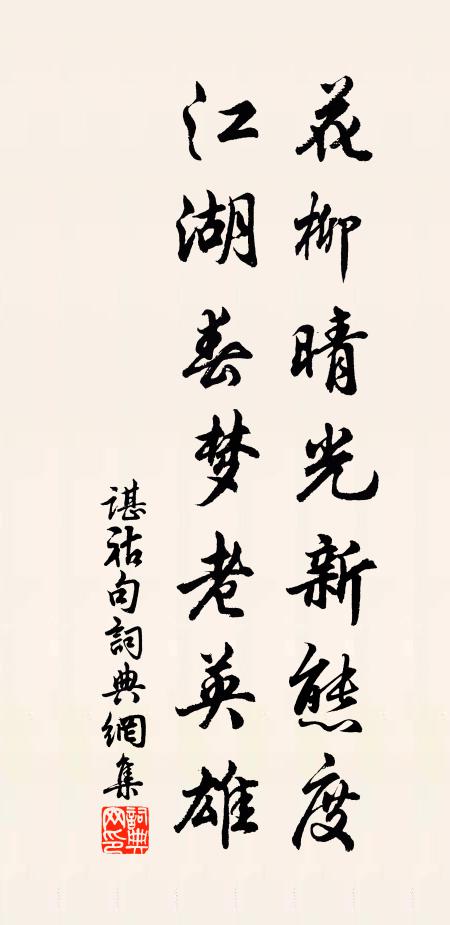 花柳晴光新態度
江湖春梦老英雄
諶祜句詞典網集
詞典網印